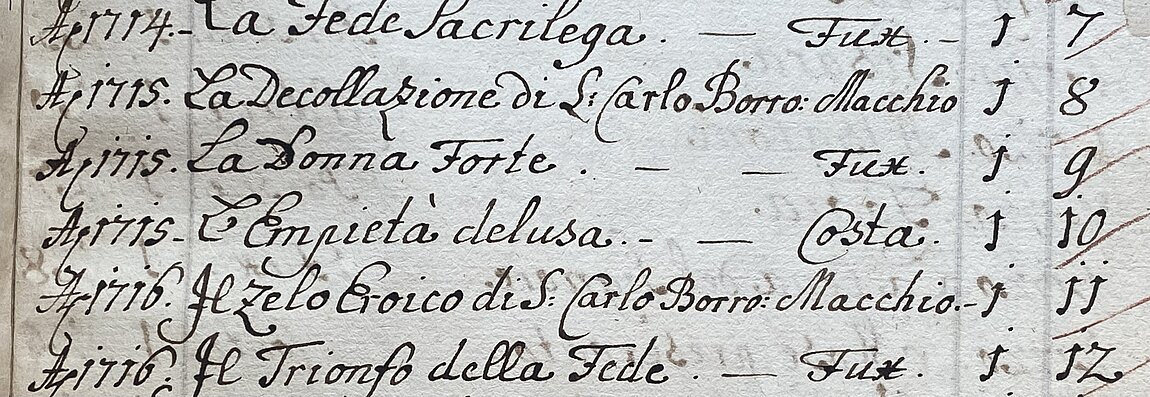 Aº 1714. - La Fede Sacrilega. — Fux. - 1 7
Aº 1715. La Decollazione di S: Carlo Borro: Macchio 1 8
Aº 1715. La Donna Forte. — — Fux. 1 9
Aº 1715 - L'Empietà delusa. - — Costa. 1 10
Aº 1716. Il Zelo Eroico di S: Carlo Borro: Macchio. - 1 11
Aº 1716. Il Trionfo della Fede. — Fux. 1 12